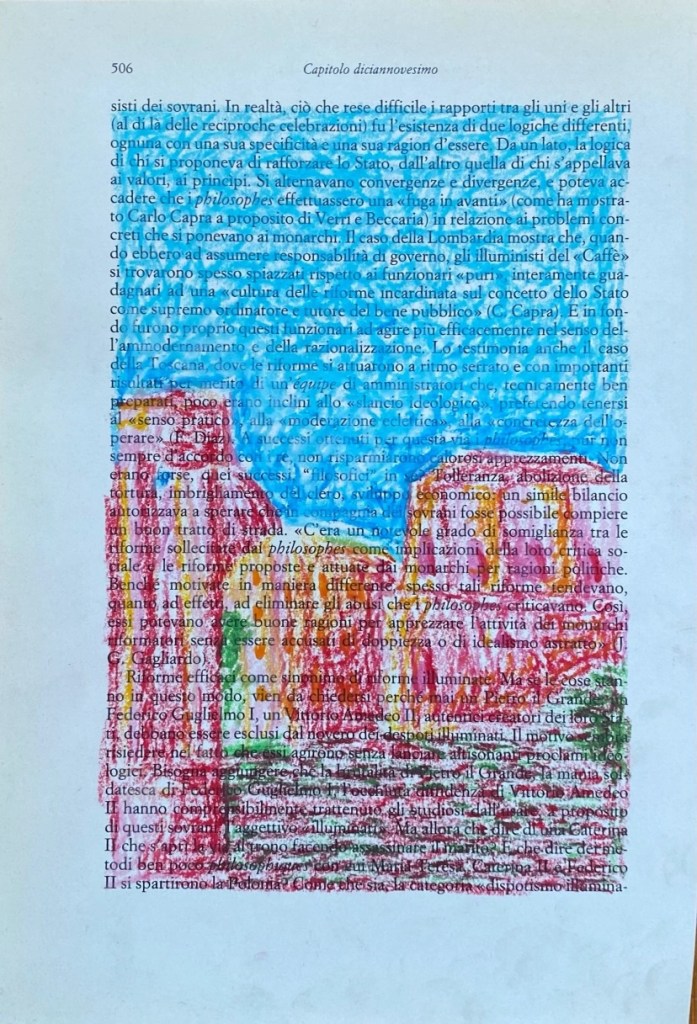 506
Capitolo diciannovesimo
sisti dei sovrani. In realtà, ciò che rese difficile i rapporti tra gli uni e gli altri
(al di là delle reciproche celebrazioni) fu l'esistenza di due logiche differenti,
ognuna con una sua specificità e una sua ragion d'essere. Da un lato, la logica
di chi si proponeva di rafforzare lo Stato, dall'altro quella di chi s'appellava
ai valori, ai principi. Si alternavano convergenze e divergenze, e poteva ac-
cadere che i philosophes effettuassero una «fuga in avanti» (come ha mostra-
to Carlo Capra a proposito di Verri e Beccaria) in relazione ai problemi con-
creti che si ponevano ai monarchi. Il caso della Lombardia mostra che, quan-
do ebbero ad assumere responsabilità di governo, gli illuministi del «Caffè»
si trovarono spesso spiazzati rispetto ai funzionari «puri», interamente gua-
dagnati ad una «cultura delle riforme incardinata sul concetto dello Stato
come supremo ordinatore e tutore del bene pubblico» (C. Capra). E in fon-
do furono proprio questi funzionari ad agire più efficacemente nel senso del-
l'ammodernamento e della razionalizzazione. Lo testimonia anche il caso
della Toscana, dove le riforme si attuarono a ritmo serrato e con importanti
risultati per merito di un équipe di amministratori che, tecnicamente ben
preparati, poco erano inclini allo «slancio ideologico», preferendo tenersi
al «senso pratico», alla «moderazione eclettica», alla «concretezza dell'o-
perare» (F. Diaz). A successi ottenuti per questa via i philosophes, pur non
sempre d'accordo con i re, non risparmiarono calorosi apprezzamenti. Non
erano forse, quei successi, "filosofici" in sé? Tolleranza, abolizione della
tortura, imbrigliamento del clero, sviluppo economico: un simile bilancio
autorizzava a sperare che in compagnia dei sovrani fosse possibile compiere
un buon tratto di strada. «C'era un notevole grado di somiglianza tra le
riforme sollecitate dai philosophes come implicazioni della loro critica so-
ciale e le riforme proposte e attuate dai monarchi per ragioni politiche.
Benché motivate in maniera differente, spesso tali riforme tendevano,
quanto ad effetto, ad eliminare gli abusi che i philosophes criticavano. Così,
essi potevano avere buone ragioni per apprezzare l'attività dei monarchi
riformatori senza essere accusati di doppiezza o di idealismo astratto» (J.
G. Gagliardo).
Riforme efficaci come sinonimo di riforme illuminate. Ma se le cose stan-
no in questo modo, vien da chiedersi perché mai un Pietro il Grande, un
Federico Guglielmo I, un Vittorio Amedeo II, autentici creatori dei loro Sta-
ti, debbano essere esclusi dal novero dei despoti illuminati. Il motivo sembra
risiedere nel fatto che essi agirono senza lanciare altisonanti proclami ideo-
logici. Bisogna aggiungere che la brutalità di Pietro il Grande, la mania sol-
datesca di Federico Guglielmo I, l'occhiuta diffidenza di Vittorio Amedeo
II hanno comprensibilmente trattenuto gli studiosi dall'usare, a proposito
di questi sovrani, l'aggettivo «illuminati». Ma allora che dire di una Caterina
II che s'aprì la via al trono facendo assassinare il marito? E che dire dei me-
todi ben poco philosophiques con cui Maria Teresa, Caterina II e Federico
II si spartirono la Polonia? Come che sia, la categoria «dispotismo illumina-